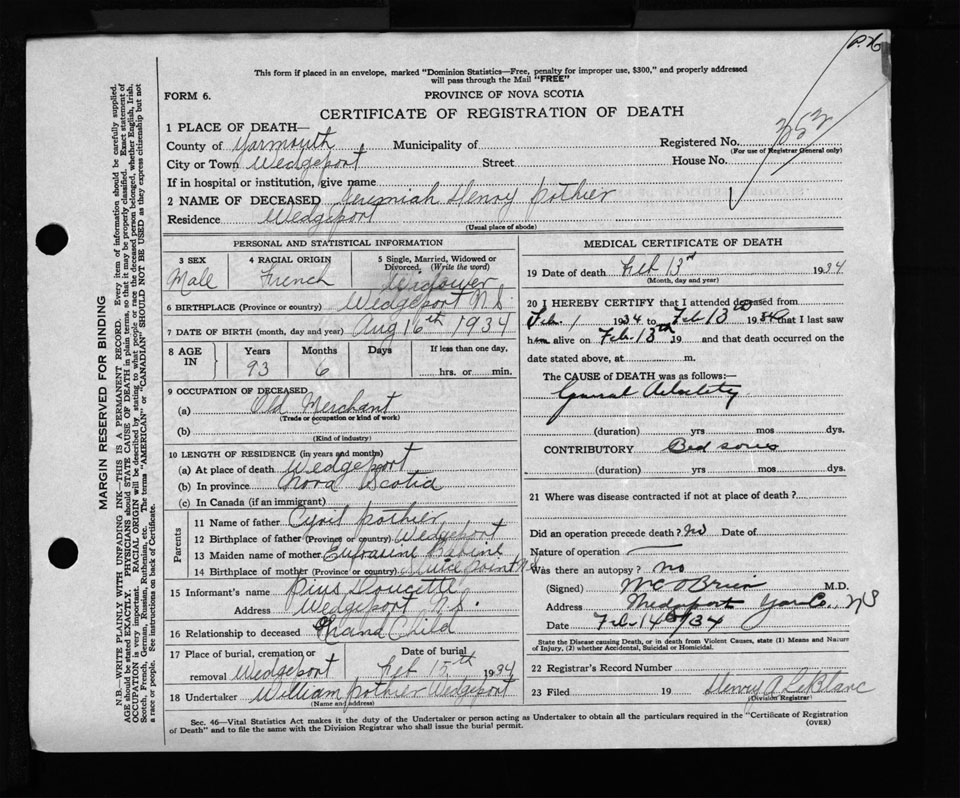 P. 26
This form if placed in an envelope, marked "Dominion Statistics—Free, penalty for improper use, $300," and properly addressed
will pass through the Mail "FREE"
FORM 6.
PROVINCE OF NOVA SCOTIA
CERTIFICATE OF REGISTRATION OF DEATH
1 PLACE OF DEATH—
County of Yarmouth Municipality of Registered No. 352
(For use of Registrar General only)
City or Town Wedgeport Street House No.
If in hospital or institution, give name
2 NAME OF DECEASED Jeremiah Henry Pothier
Residence Wedgeport
(Usual place of abode)
PERSONAL AND STATISTICAL INFORMATION
3 SEX
Male
4 RACIAL ORIGIN
French
5 Single, Married, Widowed or
Divorced. (Write the word)
Widower
6 BIRTHPLACE (Province or country) Wedgeport N.S.
7 DATE OF BIRTH (month, day and year) Aug 16th 1934
8 AGE IN
Years Months Days If less than one day,
93 6 hrs. or min.
9 OCCUPATION OF DECEASED
(a) Old Merchant
(Trade or occupation or kind of work)
(b)
(Kind of industry)
10 LENGTH OF RESIDENCE (in years and months)
(a) At place of death Wedgeport
(b) In province Nova Scotia
(c) In Canada (if an immigrant)
Parents
11 Name of father Cyril Pothier
12 Birthplace of father (Province or country) Wedgeport
13 Maiden name of mother Eufrasine Babine
14 Birthplace of mother (Province or country) Sluice Point N.S.
15 Informant's name Pius Doucette
Address Wedgeport N.S.
16 Relationship to deceased Grand Child
17 Place of burial, cremation or removal Wedgeport
Date of burial
Feb 15th 1934
18 Undertaker William Pothier Wedgeport
(Name and address)
MEDICAL CERTIFICATE OF DEATH
19 Date of death Feb 13th 1934
(Month, day and year)
20 I HEREBY CERTIFY that I attended deceased from
Feb. 1 1934 to Feb 13th 1934 that I last saw
him alive on Feb. 13th 19 and that death occurred on the
date stated above, at m.
The CAUSE of DEATH was as follows:—
General debility
(duration) yrs mos dys.
CONTRIBUTORY Bed sores
(duration) yrs mos dys.
21 Where was disease contracted if not at place of death?
Did an operation precede death? No Date of
Nature of operation
Was there an autopsy? no
(Signed) M C O'Brien M.D.
Address Wedgeport Yar Co., N S
Date Feb 14th/34
State the Disease causing Death, or in death from Violent Causes, state (1) Means and Nature
of Injury, (2) whether Accidental, Suicidal or Homicidal.
22 Registrar's Record Number
23 Filed 19 Henry A LeBlanc
(Division Registrar)
Sec. 46—Vital Statistics Act makes it the duty of the Undertaker or person acting as Undertaker to obtain all the particulars required in the "Certificate of Registration
of Death" and to file the same with the Division Registrar who shall issue the burial permit.
(OVER)
MARGIN RESERVED FOR BINDING
N.B.—WRITE PLAINLY WITH UNFADING INK—THIS IS A PERMANENT RECORD. Every item of information should be carefully supplied.
AGE should be stated EXACTLY. PHYSICIANS should STATE CAUSE OF DEATH in plain terms, so that it may be properly classified. Exact statement of
OCCUPATION is very important. RACIAL ORIGIN will be described by stating to what people or race the deceased person belonged, whether English, Irish,
Scotch, French, German, Russian, Ruthenian, etc. The terms "AMERICAN" or "CANADIAN" SHOULD NOT BE USED as they express citizenship but not
a race or people. See instructions on back of Certificate.